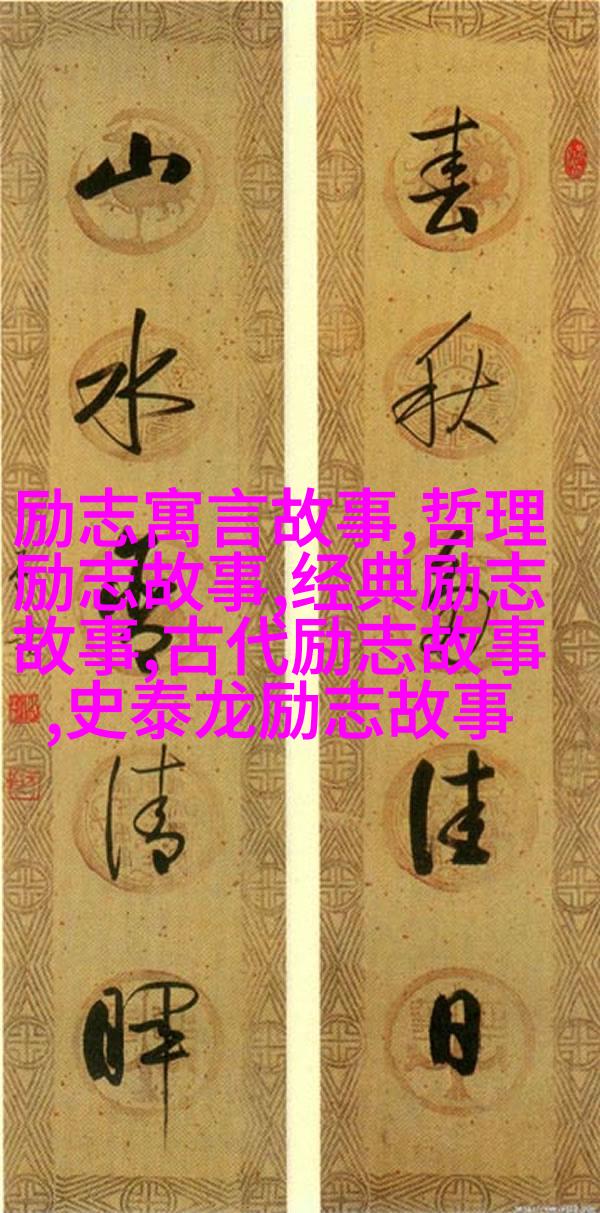 春秋佳日
山水清暉
励志寓言故事,哲理
励志故事,经典励志
故事,古代励志故事
,史泰龙励志故事